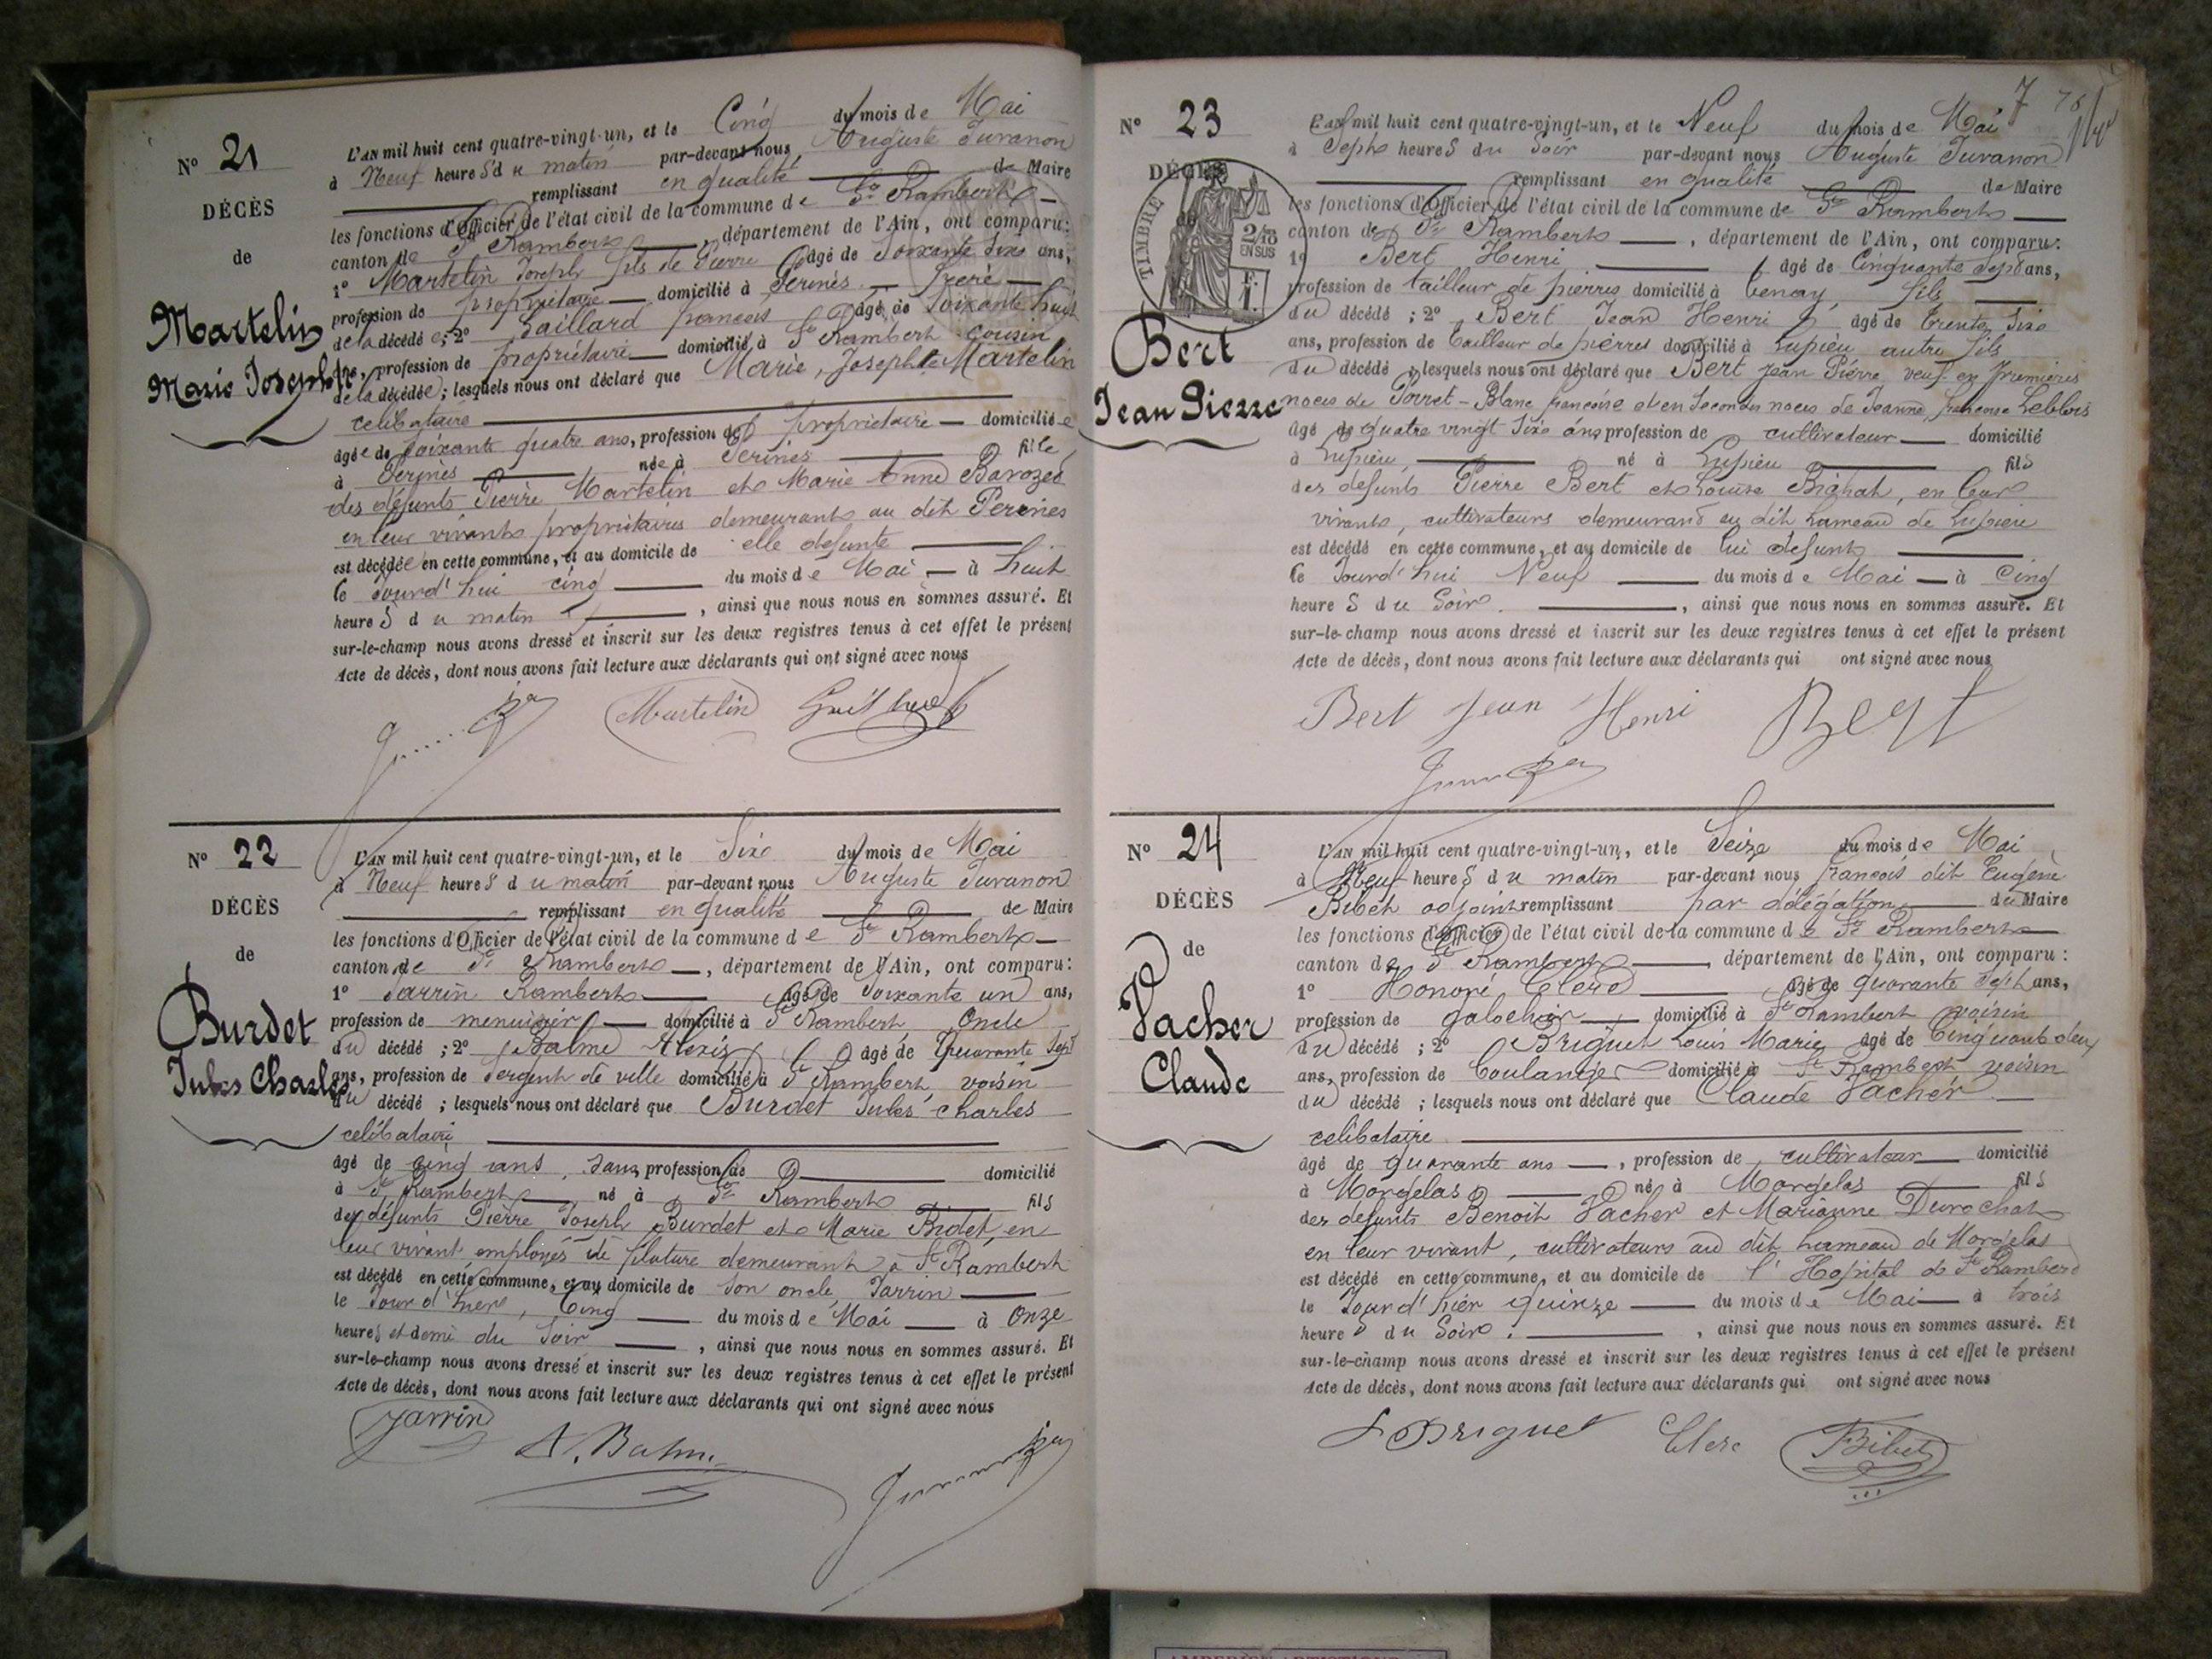 N° 21
DÉCÈS
de
Martelin
Marie Josephte
L'AN mil huit cent quatre-vingt-un, et le Cinq du mois de Mai
à Neuf heures du matin par-devant nous Auguste Juvanon
remplissant en qualité de Maire
les fonctions d'Officier de l'état civil de la commune de St Rambert
canton de St Rambert, département de l'Ain, ont comparu:
1° Martelin Joseph fils de Pierre âgé de Soixante Dix ans,
profession de propriétaire domicilié à Serines frère
de la décédée; 2° françois âgé de Soixante huit
ans, profession de propriétaire domicilié à St Rambert cousin
de la décédée; lesquels nous ont déclaré que Marie, Josephte Martelin
celibataire
âgée de Soixante quatre ans, profession de propriétaire domiciliée
à Serines née à Serines fille
des défunts Pierre Martelin et Marie Anne
en leur vivants propriétaires demeurants au dit Serines
est décédée en cette commune, et au domicile de elle defunte
le Jourd'hui cinq du mois de Mai à huit
heures du matin, ainsi que nous nous en sommes assuré. Et
sur-le-champ nous avons dressé et inscrit sur les deux registres tenus à cet effet le présent
Acte de décès, dont nous avons fait lecture aux déclarants qui ont signé avec nous
Martelin
N° 22
DÉCÈS
de
Burdet
Jules Charles
L'AN mil huit cent quatre-vingt-un, et le Six du mois de Mai
à Neuf heures du matin par-devant nous Auguste Juvanon
remplissant en qualité de Maire
les fonctions d'Officier de l'état civil de la commune de St Rambert
canton de St Rambert, département de l'Ain, ont comparu:
1° Jarrin Rambert âgé de Soixante un ans,
profession de menuisier domicilié à St Rambert Oncle
du décédé; 2° Balme Alexis âgé de Quarante Sept
ans, profession de Sergent de ville domicilié à St Rambert voisin
du décédé; lesquels nous ont déclaré que Burdet Jules charles
celibataire
âgé de cinq ans, sans profession de domicilié
à St Rambert né à St Rambert fils
des défunts Pierre Joseph Burdet et Marie Bidet, en
leur vivant employés de filature demeurant à St Rambert
est décédé en cette commune, et au domicile de son oncle Jarrin
le Jour d'hier, Cinq du mois de Mai à Onze
heures et demi du Soir, ainsi que nous nous en sommes assuré. Et
sur-le-champ nous avons dressé et inscrit sur les deux registres tenus à cet effet le présent
Acte de décès, dont nous avons fait lecture aux déclarants qui ont signé avec nous
Jarrin
7
N° 23
DÉCÈS
de
TIMBRE
2/10
EN SUS
Bert
Jean Pierre
L'AN mil huit cent quatre-vingt-un, et le Neuf du mois de Mai
à Sept heures du Soir par-devant nous Auguste Juvanon
remplissant en qualité de Maire
les fonctions d'Officier de l'état civil de la commune de St Rambert
canton de St Rambert, département de l'Ain, ont comparu:
1° Bert Henri âgé de Cinquante Sept ans,
profession de tailleur de pierres domicilié à tenay, fils
du décédé; 2° Bert Jean Henri âgé de trente Six
ans, profession de tailleur de pierres domicilié à Lupieu autre fils
du décédé; lesquels nous ont déclaré que Bert Jean Pierre veuf en premières
noces de Porret-Blanc françoise et en Secondes noces de Jeanne françoise Leblois
âgé de quatre vingt Six ans profession de cultivateur domicilié
à Lupieu, né à Lupieu fils
des defunts Pierre Bert et Louise en leur
vivants, cultivateurs demeurand au dit hameau de Lupieu
est décédé en cette commune, et au domicile de lui defunt
le Jourd'hui Neuf du mois de Mai à Cinq
heures du Soir, ainsi que nous nous en sommes assuré. Et
sur-le-champ nous avons dressé et inscrit sur les deux registres tenus à cet effet le présent
Acte de décès, dont nous avons fait lecture aux déclarants qui ont signé avec nous
Bert Jean Henri Bert
N° 24
DÉCÈS
de
Vacher
Claude
L'AN mil huit cent quatre-vingt-un, et le Seize du mois de Mai
à Neuf heures du matin par-devant nous françois dit Eugène
Bibet adjoint remplissant par délégation du Maire
les fonctions d'Officier de l'état civil de la commune de St Rambert
canton de St Rambert, département de l'Ain, ont comparu:
1° Honoré Clerc âgé de quarante Sept ans,
profession de galochier domicilié à St Rambert voisin
du décédé; 2° Briguet Louis Marie âgé de Cinquante deux
ans, profession de boulanger domicilié à St Rambert voisin
du décédé; lesquels nous ont déclaré que Claude Vacher
celibataire
âgé de quarante ans, profession de cultivateur domicilié
à Morgelas né à Morgelas fils
des defunts Benoit Vacher et Marianne Durochat
en leur vivant, cultivateurs au dit hameau de Morgelas
est décédé en cette commune, et au domicile de l'Hopital de St Rambert
le Jourd'hier quinze du mois de Mai à trois
heures du Soir, ainsi que nous nous en sommes assuré. Et
sur-le-champ nous avons dressé et inscrit sur les deux registres tenus à cet effet le présent
Acte de décès, dont nous avons fait lecture aux déclarants qui ont signé avec nous
L Briguet Clerc Bibet